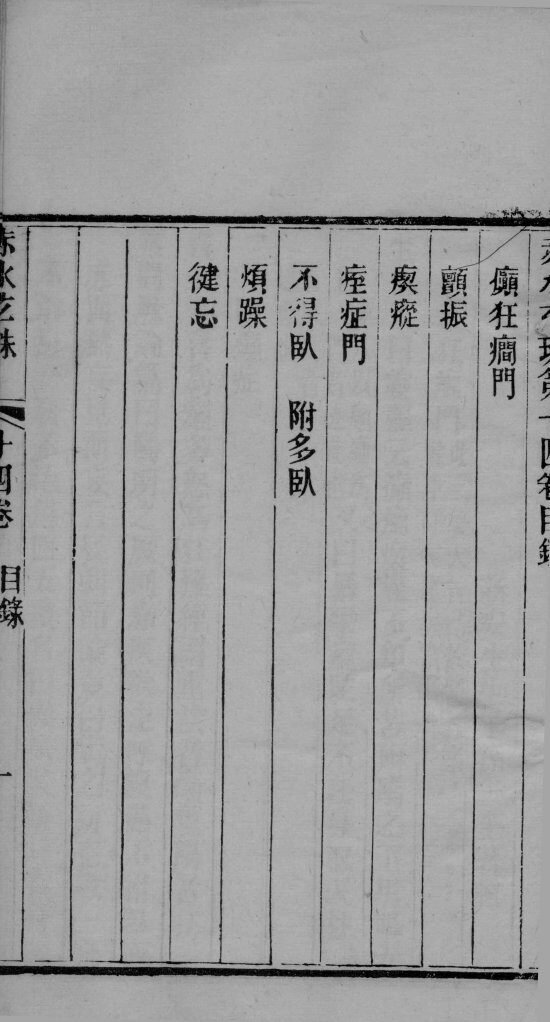 赤水玄珠第十四卷目錄
癲狂癎門
顫振
瘈瘲
痓症門
不得臥　附多臥
煩躁
徤忘
赤水玄珠　十四卷　目錄　一